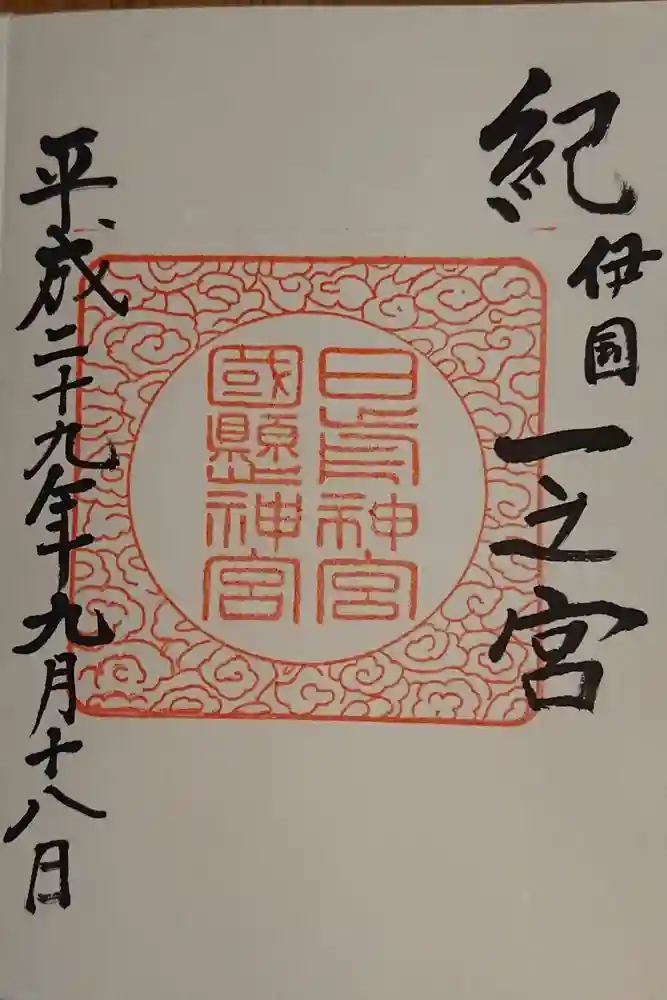 紀伊国一之宮
日前神宮
國懸神宮
平成二十九年九月十八日